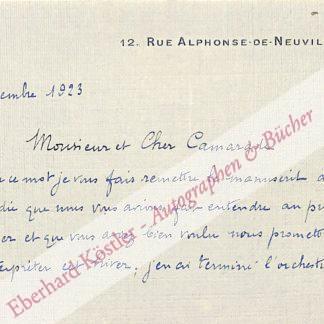 12. RUE ALPHONSE-DE-NEUVIL
embre 1923
Monsieur et Cher Camarade
ce mot je vous fais remettre le manuscrit d
die que nous vous avions fait entendre au pr
er et que vous avez bien voulu nous promett
terpréter cet hiver; j'en ai terminé l'orchest
Eberhard Köstler - Autographen & Bücher